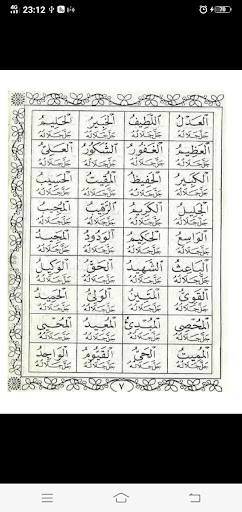 23:12
78
اَلْعَدْلُ اَللَّطِيْفُ اَلْخَبِيْرُ اَلْحَلِيْمُ
جَلَّ جَلَالُهُ جَلَّ جَلَالُهُ جَلَّ جَلَالُهُ جَلَّ جَلَالُهُ
اَلْعَظِيْمُ اَلْغَفُوْرُ اَلشَّكُوْرُ اَلْعَلِيُّ
جَلَّ جَلَالُهُ جَلَّ جَلَالُهُ جَلَّ جَلَالُهُ جَلَّ جَلَالُهُ
اَلْكَبِيْرُ اَلْحَفِيْظُ اَلْمُقِيْتُ اَلْحَسِيْبُ
جَلَّ جَلَالُهُ جَلَّ جَلَالُهُ جَلَّ جَلَالُهُ جَلَّ جَلَالُهُ
اَلْجَلِيْلُ اَلْكَرِيْمُ اَلرَّقِيْبُ اَلْمُجِيْبُ
جَلَّ جَلَالُهُ جَلَّ جَلَالُهُ جَلَّ جَلَالُهُ جَلَّ جَلَالُهُ
اَلْوَاسِعُ اَلْحَكِيْمُ اَلْوَدُوْدُ اَلْمَجِيْدُ
جَلَّ جَلَالُهُ جَلَّ جَلَالُهُ جَلَّ جَلَالُهُ جَلَّ جَلَالُهُ
اَلْبَاعِثُ اَلشَّهِيْدُ اَلْحَقُّ اَلْوَكِيْلُ
جَلَّ جَلَالُهُ جَلَّ جَلَالُهُ جَلَّ جَلَالُهُ جَلَّ جَلَالُهُ
اَلْقَوِيُّ اَلْمَتِيْنُ اَلْوَلِيُّ اَلْحَمِيْدُ
جَلَّ جَلَالُهُ جَلَّ جَلَالُهُ جَلَّ جَلَالُهُ جَلَّ جَلَالُهُ
اَلْمُحْصِي اَلْمُبْدِئُ اَلْمُعِيْدُ اَلْمُحْيِي
جَلَّ جَلَالُهُ جَلَّ جَلَالُهُ جَلَّ جَلَالُهُ جَلَّ جَلَالُهُ
اَلْمُمِيْتُ اَلْحَيُّ اَلْقَيُّوْمُ اَلْوَاجِدُ
جَلَّ جَلَالُهُ جَلَّ جَلَالُهُ جَلَّ جَلَالُهُ جَلَّ جَلَالُهُ
٧